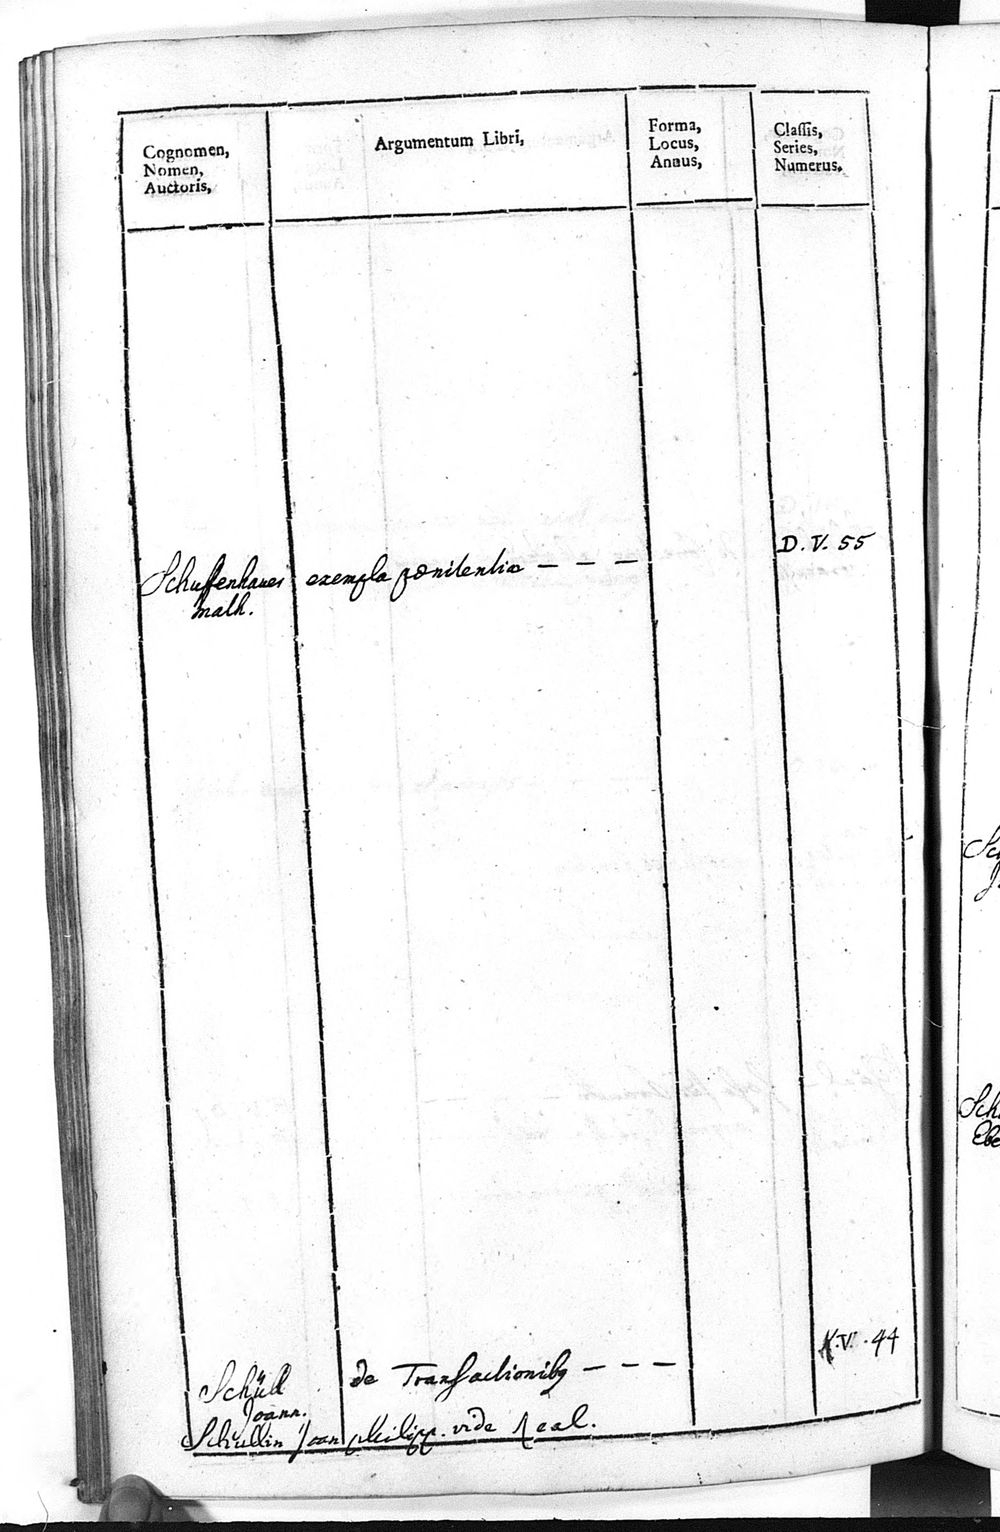 Cognomen,
Nomen,
Auctoris,
Argumentum Libri,
Forma,
Locus,
Annus,
Classis,
Series,
Numerus,
Schuffenhauer exempla pœnitentiæ — — — D. V. 55
Math.
Schüll de Transactionibq — — — K. V. 44
Joann.
Schüllin Joan Philipp. vide Real.
Sch
Eb